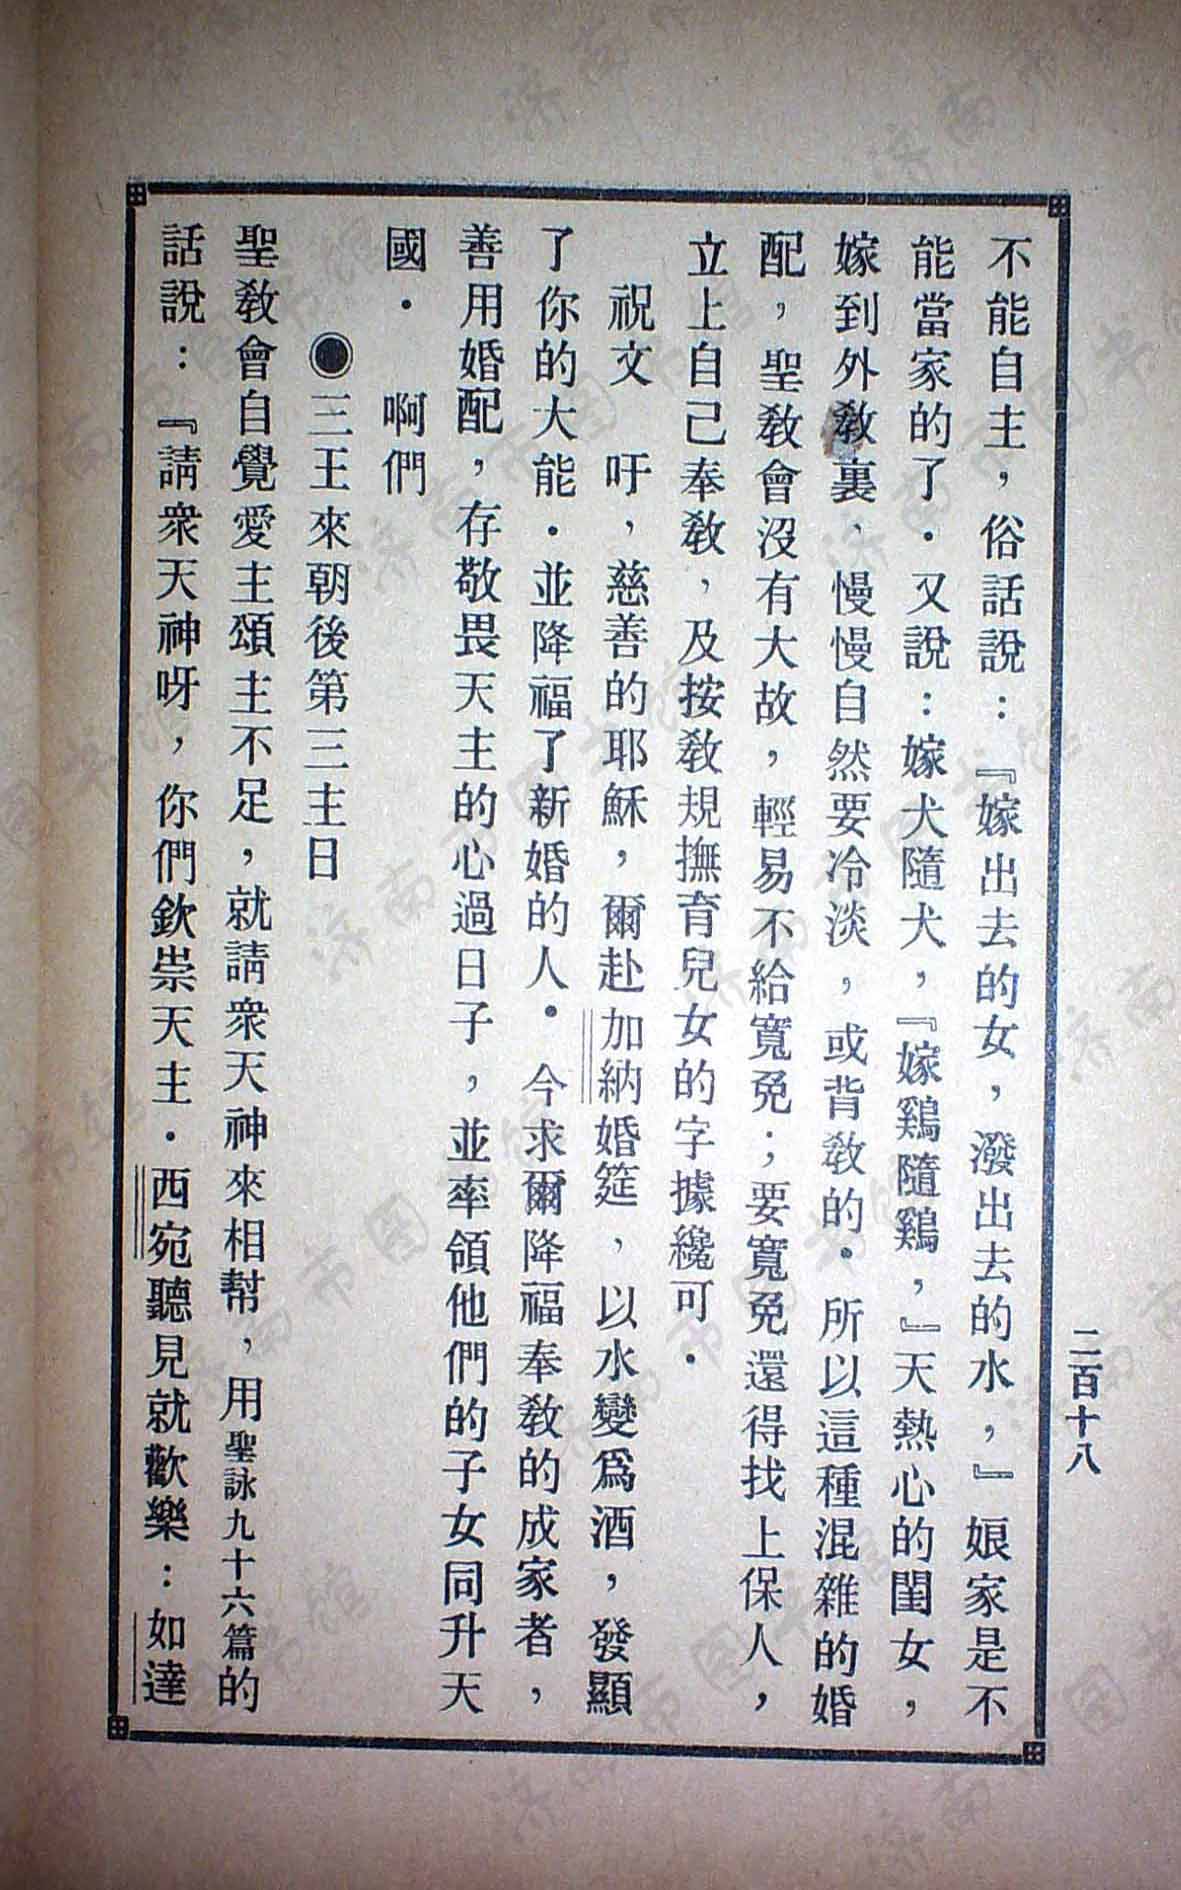 不能自主，俗話說：『嫁出去的女，潑出去的水，』娘家是不
能當家的了．又說：嫁犬隨犬，『嫁鷄隨鷄，』天熱心的閨女，
嫁到外敎裏、慢慢自然要冷淡，或背敎的．所以這種混雜的婚
配，聖敎會沒有大故，輕易不給寬免；要寬免還得找上保人，
立上自己奉敎，及按敎規撫育兒女的字據纔可．
祝文　吁，慈善的耶穌，爾赴加納婚筵，以水變爲酒，發顯
了你的大能．並降福了新婚的人．今求爾降福奉敎的成家者，
善用婚配，存敬畏天主的心過日子，並率領他們的子女同升天
國．　啊們
◉三王來朝後第三主日
聖敎會自覺愛主頌主不足，就請衆天神來相幫，用聖詠九十六篇的
話說：『請衆天神呀，你們欽崇天主．西宛聽見就歡樂：如達
二百十八
济南市图书馆